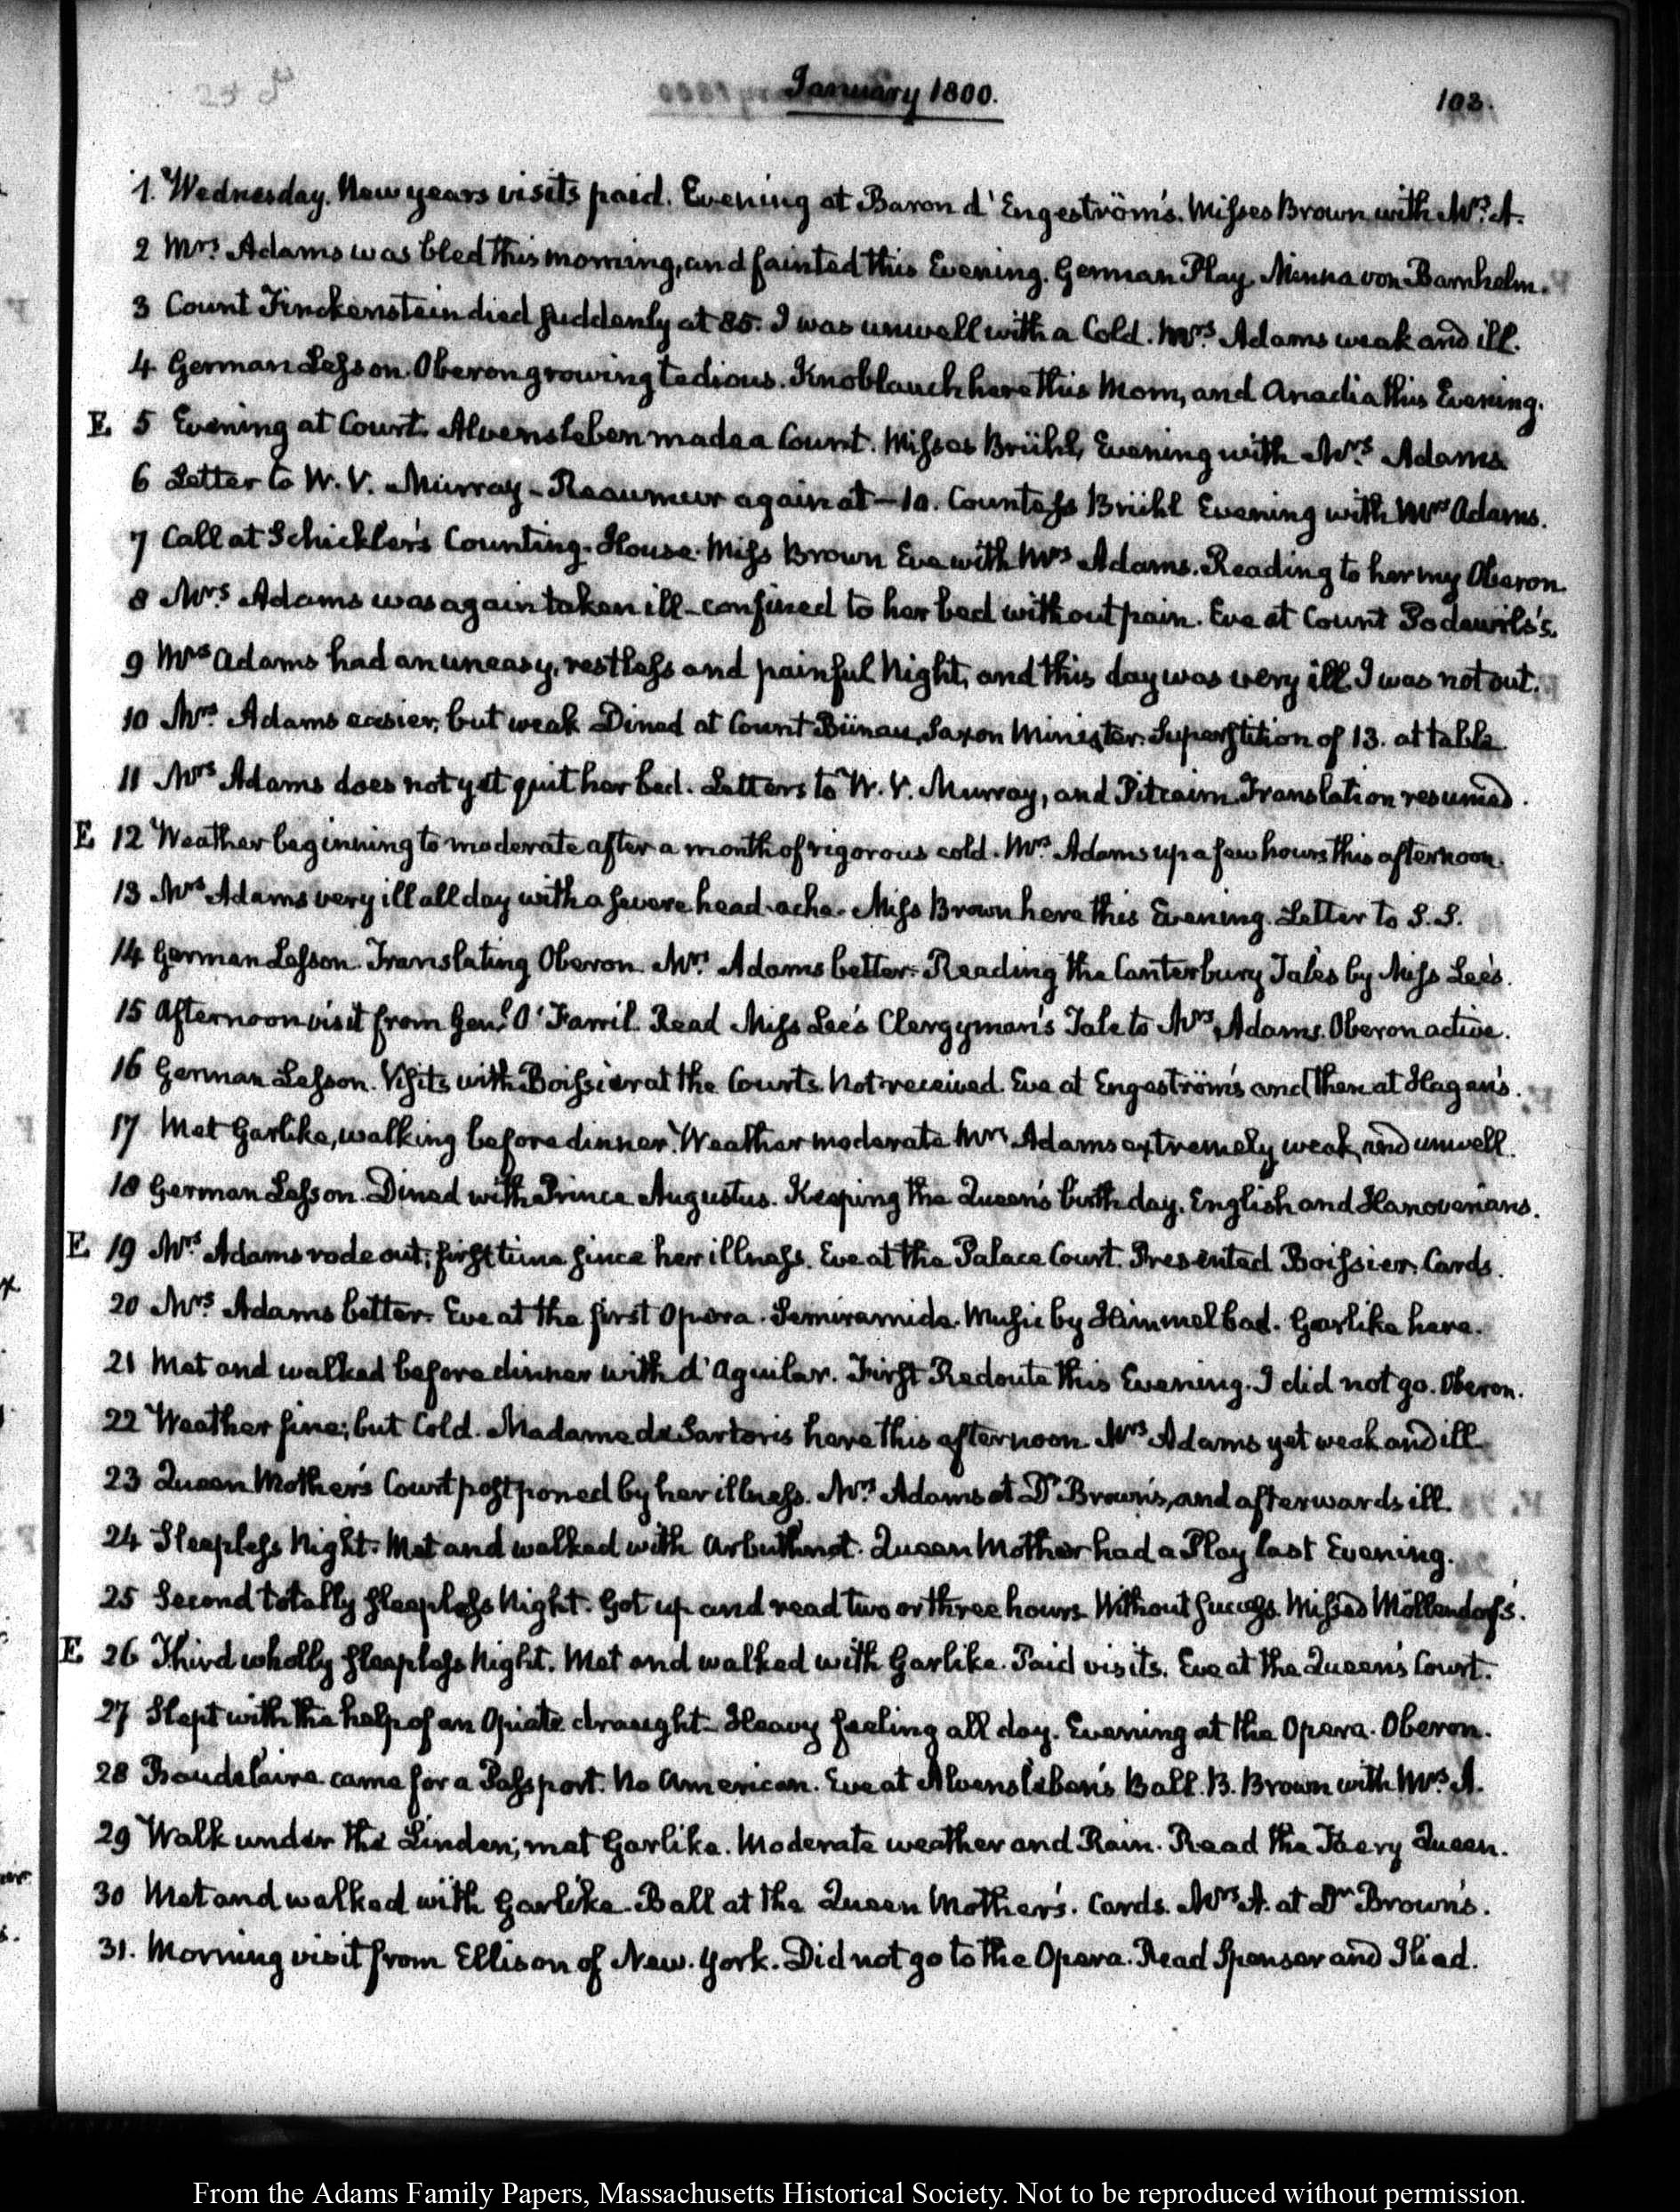 January 1800.
103.
1. Wednesday. New years visits paid. Evening at Baron d'Engeström's. Misses Brown with Mrs. A.
2 Mrs. Adams was bled this morning, and fainted this Evening. German Play. Minna von Barnhelm.
3 Count Finckenstein died suddenly at 85. I was unwell with a Cold. Mrs. Adams weak and ill.
4 German Lesson. Oberon growing tedious. Knoblauch here this Morn, and Anadia this Evening.
E 5 Evening at Court. Alvensleben made a Count. Misses Brühl, Evening with Mrs. Adams
6 Letter to W. V. Murray - Reaumur again at -10. Countess Brühl Evening with Mrs Adams.
7 Call at Schickler's Counting-House. Miss Brown Eve with Mrs Adams. Reading to her my Oberon.
8 Mrs. Adams was again taken ill - confined to her bed without pain. Eve at Count Podewils's.
9 Mrs Adams had an uneasy, restless and painful Night, and this day was very ill. I was not out.
10 Mrs. Adams easier, but weak Dined at Count Bünau, Saxon Minister. Superstition of 13. at table.
11 Mrs Adams does not yet quit her bed. Letters to W. V. Murray, and Pitcairn. Translation resumed.
E 12 Weather beginning to moderate after a month of rigorous cold. Mrs. Adams up a few hours this afternoon.
13 Mrs Adams very ill all day with a severe head-ache. Miss Brown here this Evening. Letter to S. S.
14 German Lesson. Translating Oberon. Mrs. Adams better. Reading the Canterbury Tales by Miss Lee's.
15 Afternoon visit from Genl. O'Farril. Read Miss Lee's Clergyman's Tale to Mrs. Adams. Oberon active.
16 German Lesson. Visits with Boissier at the Courts. Not received. Eve at Engeström's and then at Hagen's.
17 Met Garlike, walking before dinner. Weather moderate Mrs Adams extremely weak, and unwell.
18 German Lesson. Dined with Prince Augustus. Keeping the Queen's birth day. English and Hanoverians.
E 19 Mrs. Adams rode out; first time since her illness. Eve at the Palace Court. Presented Boissier. Cards.
20 Mrs Adams better. Eve at the first Opera. Semiramide. Music by Himmel bad. Garlike here.
21 Met and walked before dinner with d'Aguilar. First Redoute this Evening. I did not go. Oberon.
22 Weather fine; but Cold. Madame de Sartoris here this afternoon. Mrs Adams yet weak and ill.
23 Queen Mother's Court postponed by her illness. Mrs. Adams at Dr Brown's, and afterwards ill.
24 Sleepless Night. Met and walked with Arbuthnot. Queen Mother had a Play last Evening.
25 Second totally sleepless Night. Got up and read two or three hours. Without success. Missed Möllendorf's.
E 26 Third wholly sleepless Night. Met and walked with Garlike. Paid visits. Eve at the Queen's Court.
27 Slept with the help of an Opiate draught. Heavy feeling all day. Evening at the Opera. Oberon.
28 Baudelaire came for a Passport. No American. Eve at Alvensleben's Ball. B. Brown with Mrs. A.
29 Walk under the Linden; met Garlike. Moderate weather and Rain. Read the Faery Queen.
30 Met and walked with Garlike. Ball at the Queen Mother's. Cards. Mrs A. at Dr Brown's.
31. Morning visit from Ellison of New-York. Did not go to the Opera. Read Spenser and Iliad.
From the Adams Family Papers, Massachusetts Historical Society. Not to be reproduced without permission.